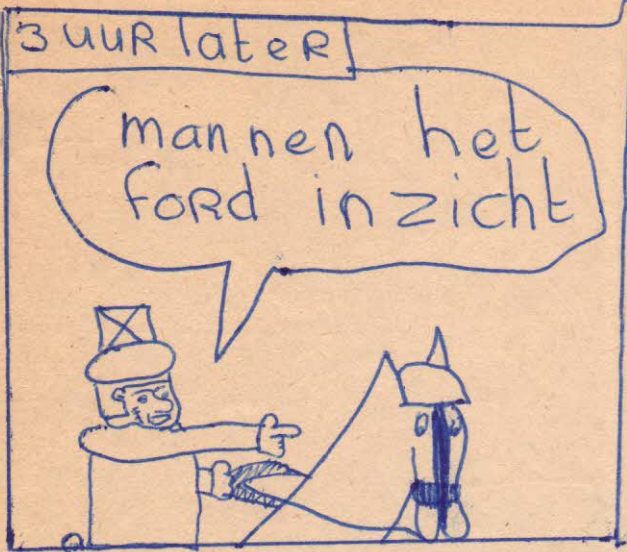 3 uuR lateR
mannen het
foRd in zicht